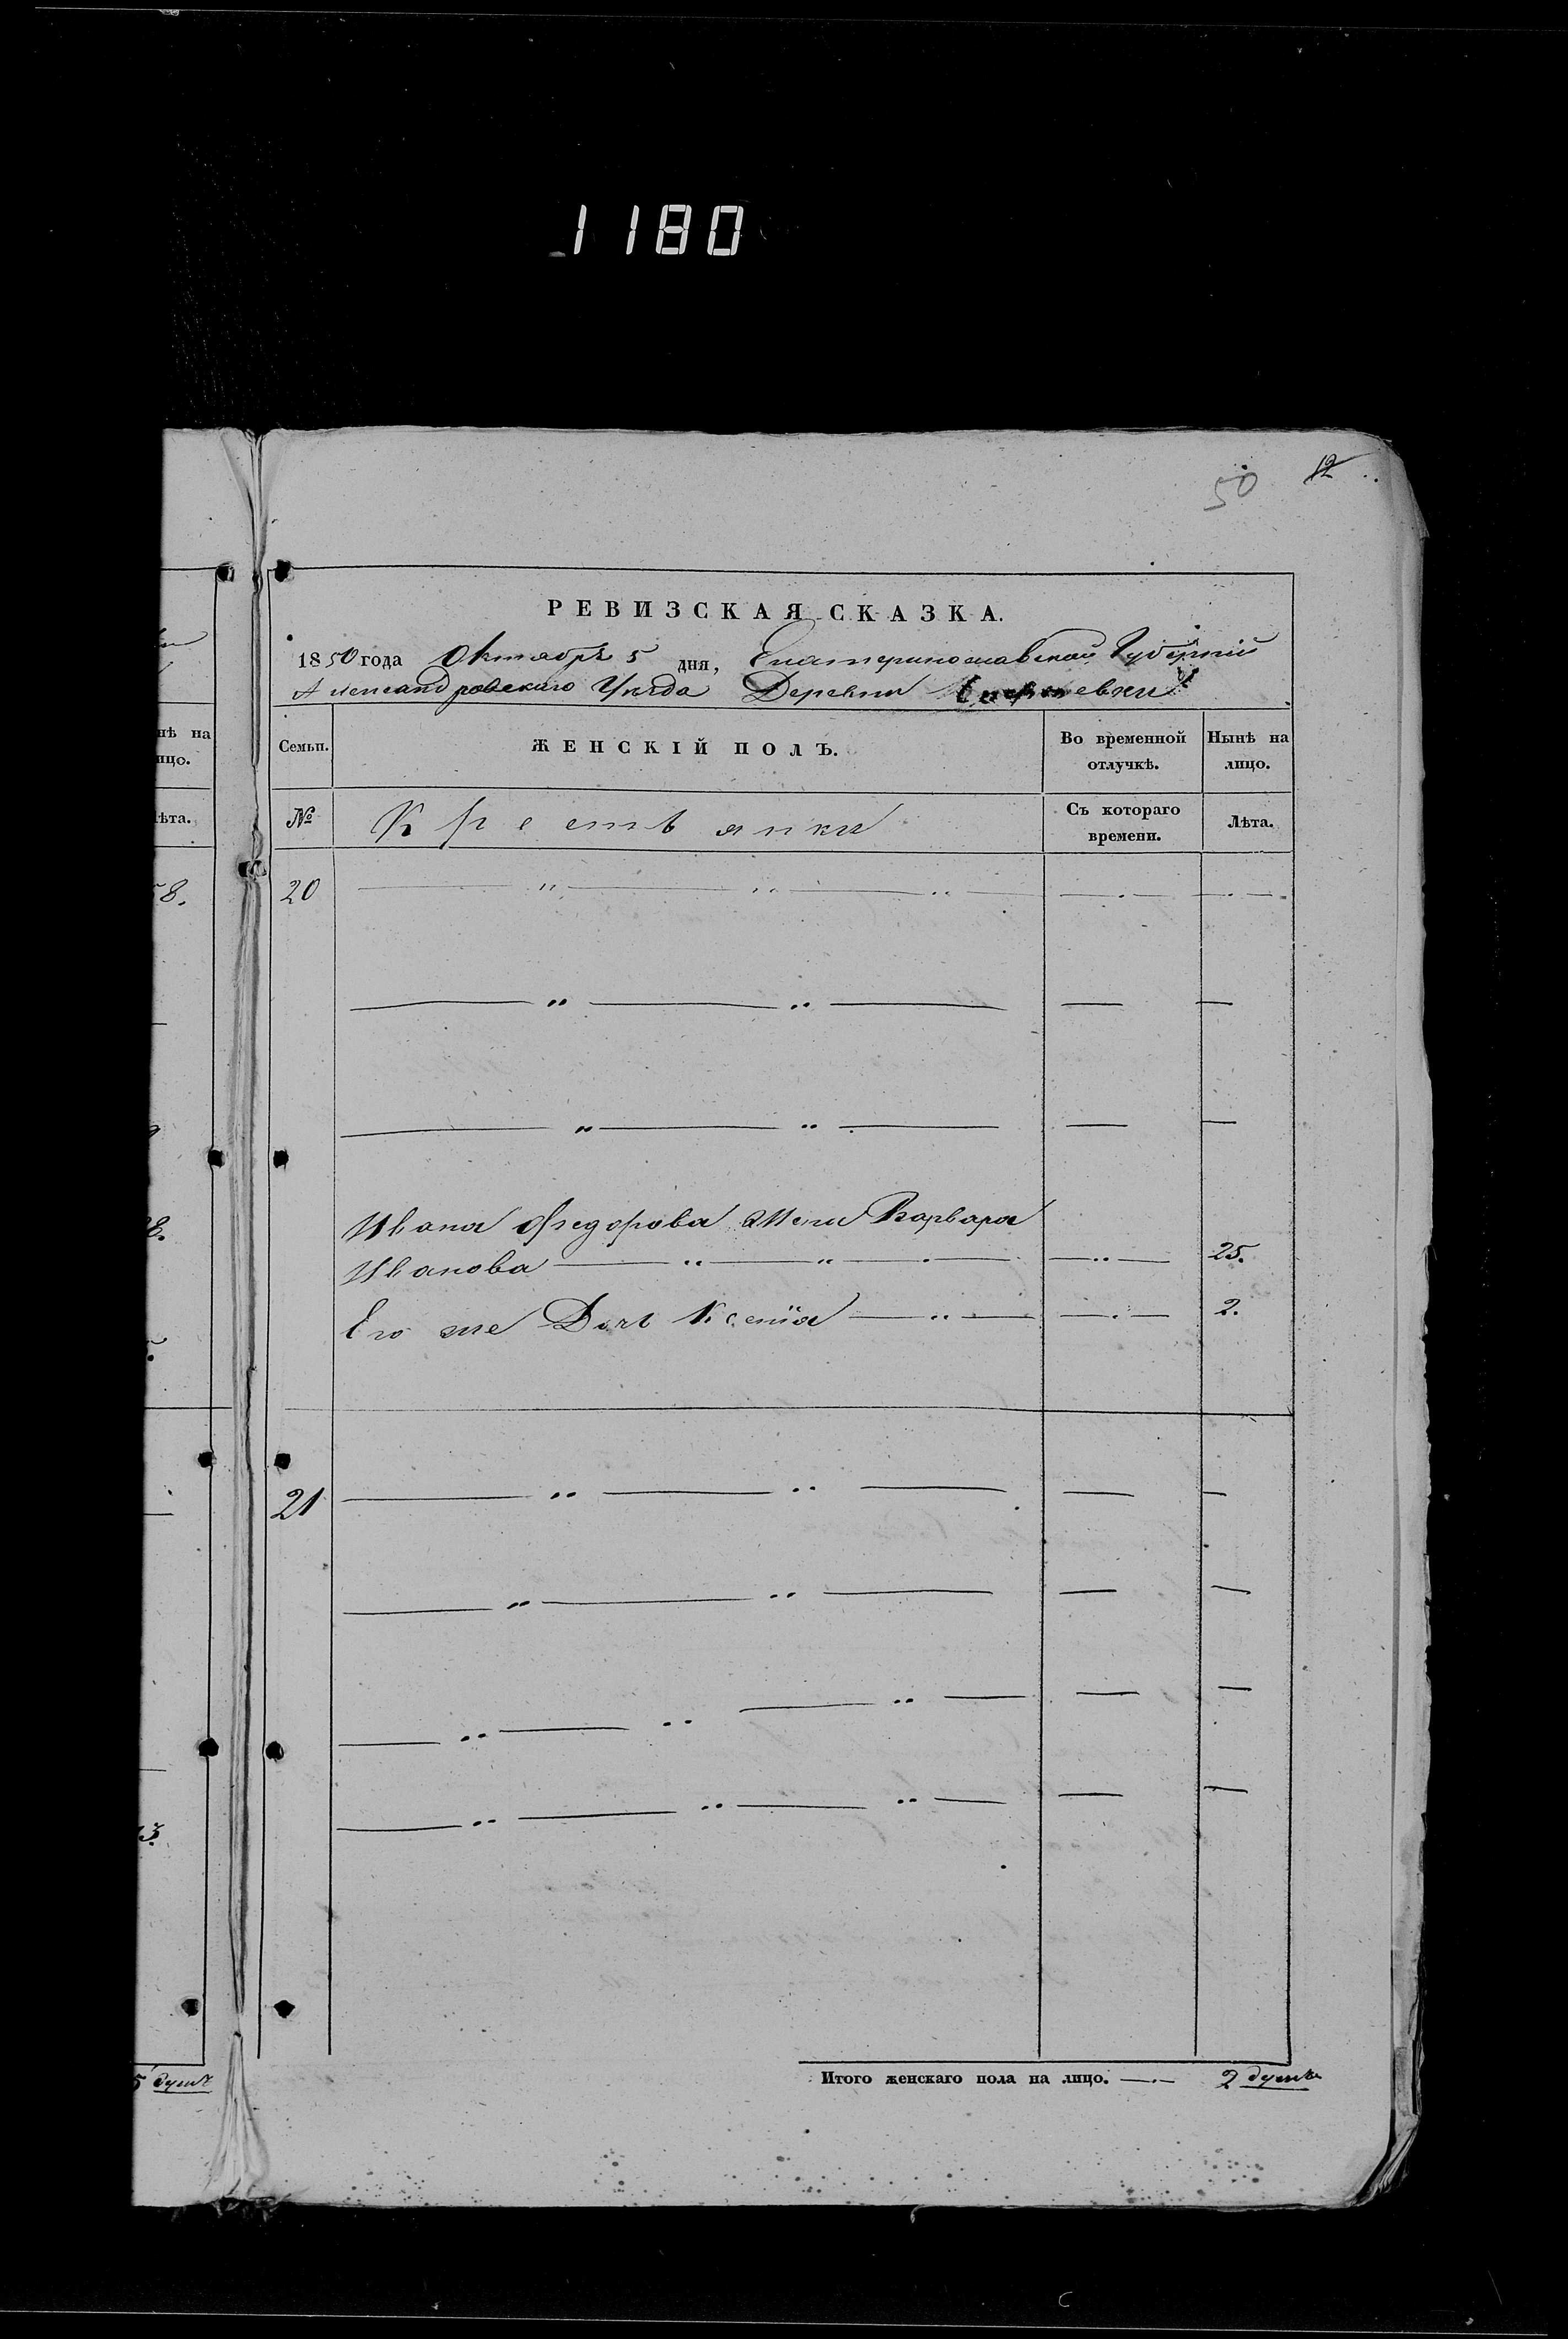 1180
50 12
РЕВИЗСКАЯ СКАЗКА.
1850 года Октября 5 дня, Екатеринославской Губерніи
Александровскаго Уѣзда Деревни
Семьи. ЖЕНСКІЙ ПОЛЪ. Во временной отлучкѣ. Нынѣ на лицо.
№ Крестьянки Съ котораго времени. Лѣта.
20
Ивана Федорова Жена Варвара
Иванова 25.
Его же Дочь Ксенія 2.
21
Итого женскаго пола на лицо. 2 души